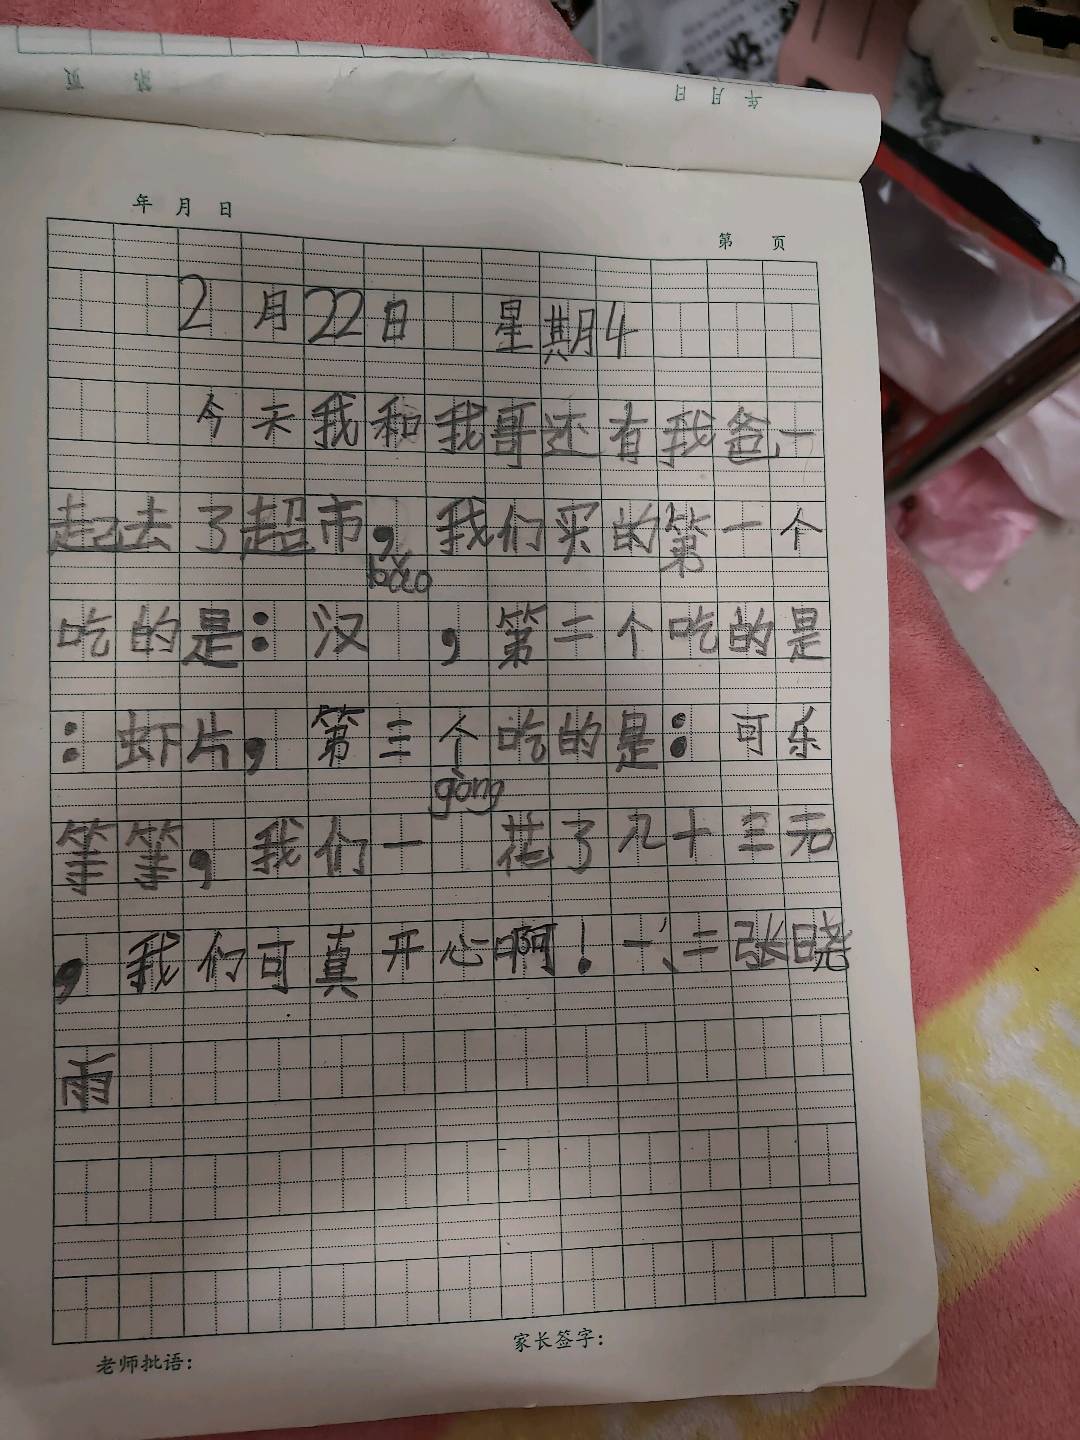 年 月 日
第 页
2月22日 星期4
今天我和我哥还有我爸一
起去了超市，我们买的第一个
bǎo
吃的是：汉 ，第二个吃的是
：虾片，第三个吃的是：可乐
gòng
等等，我们一 花了九十三元
，我们可真开心啊！一、二张晓
雨
老师批语：
家长签字：